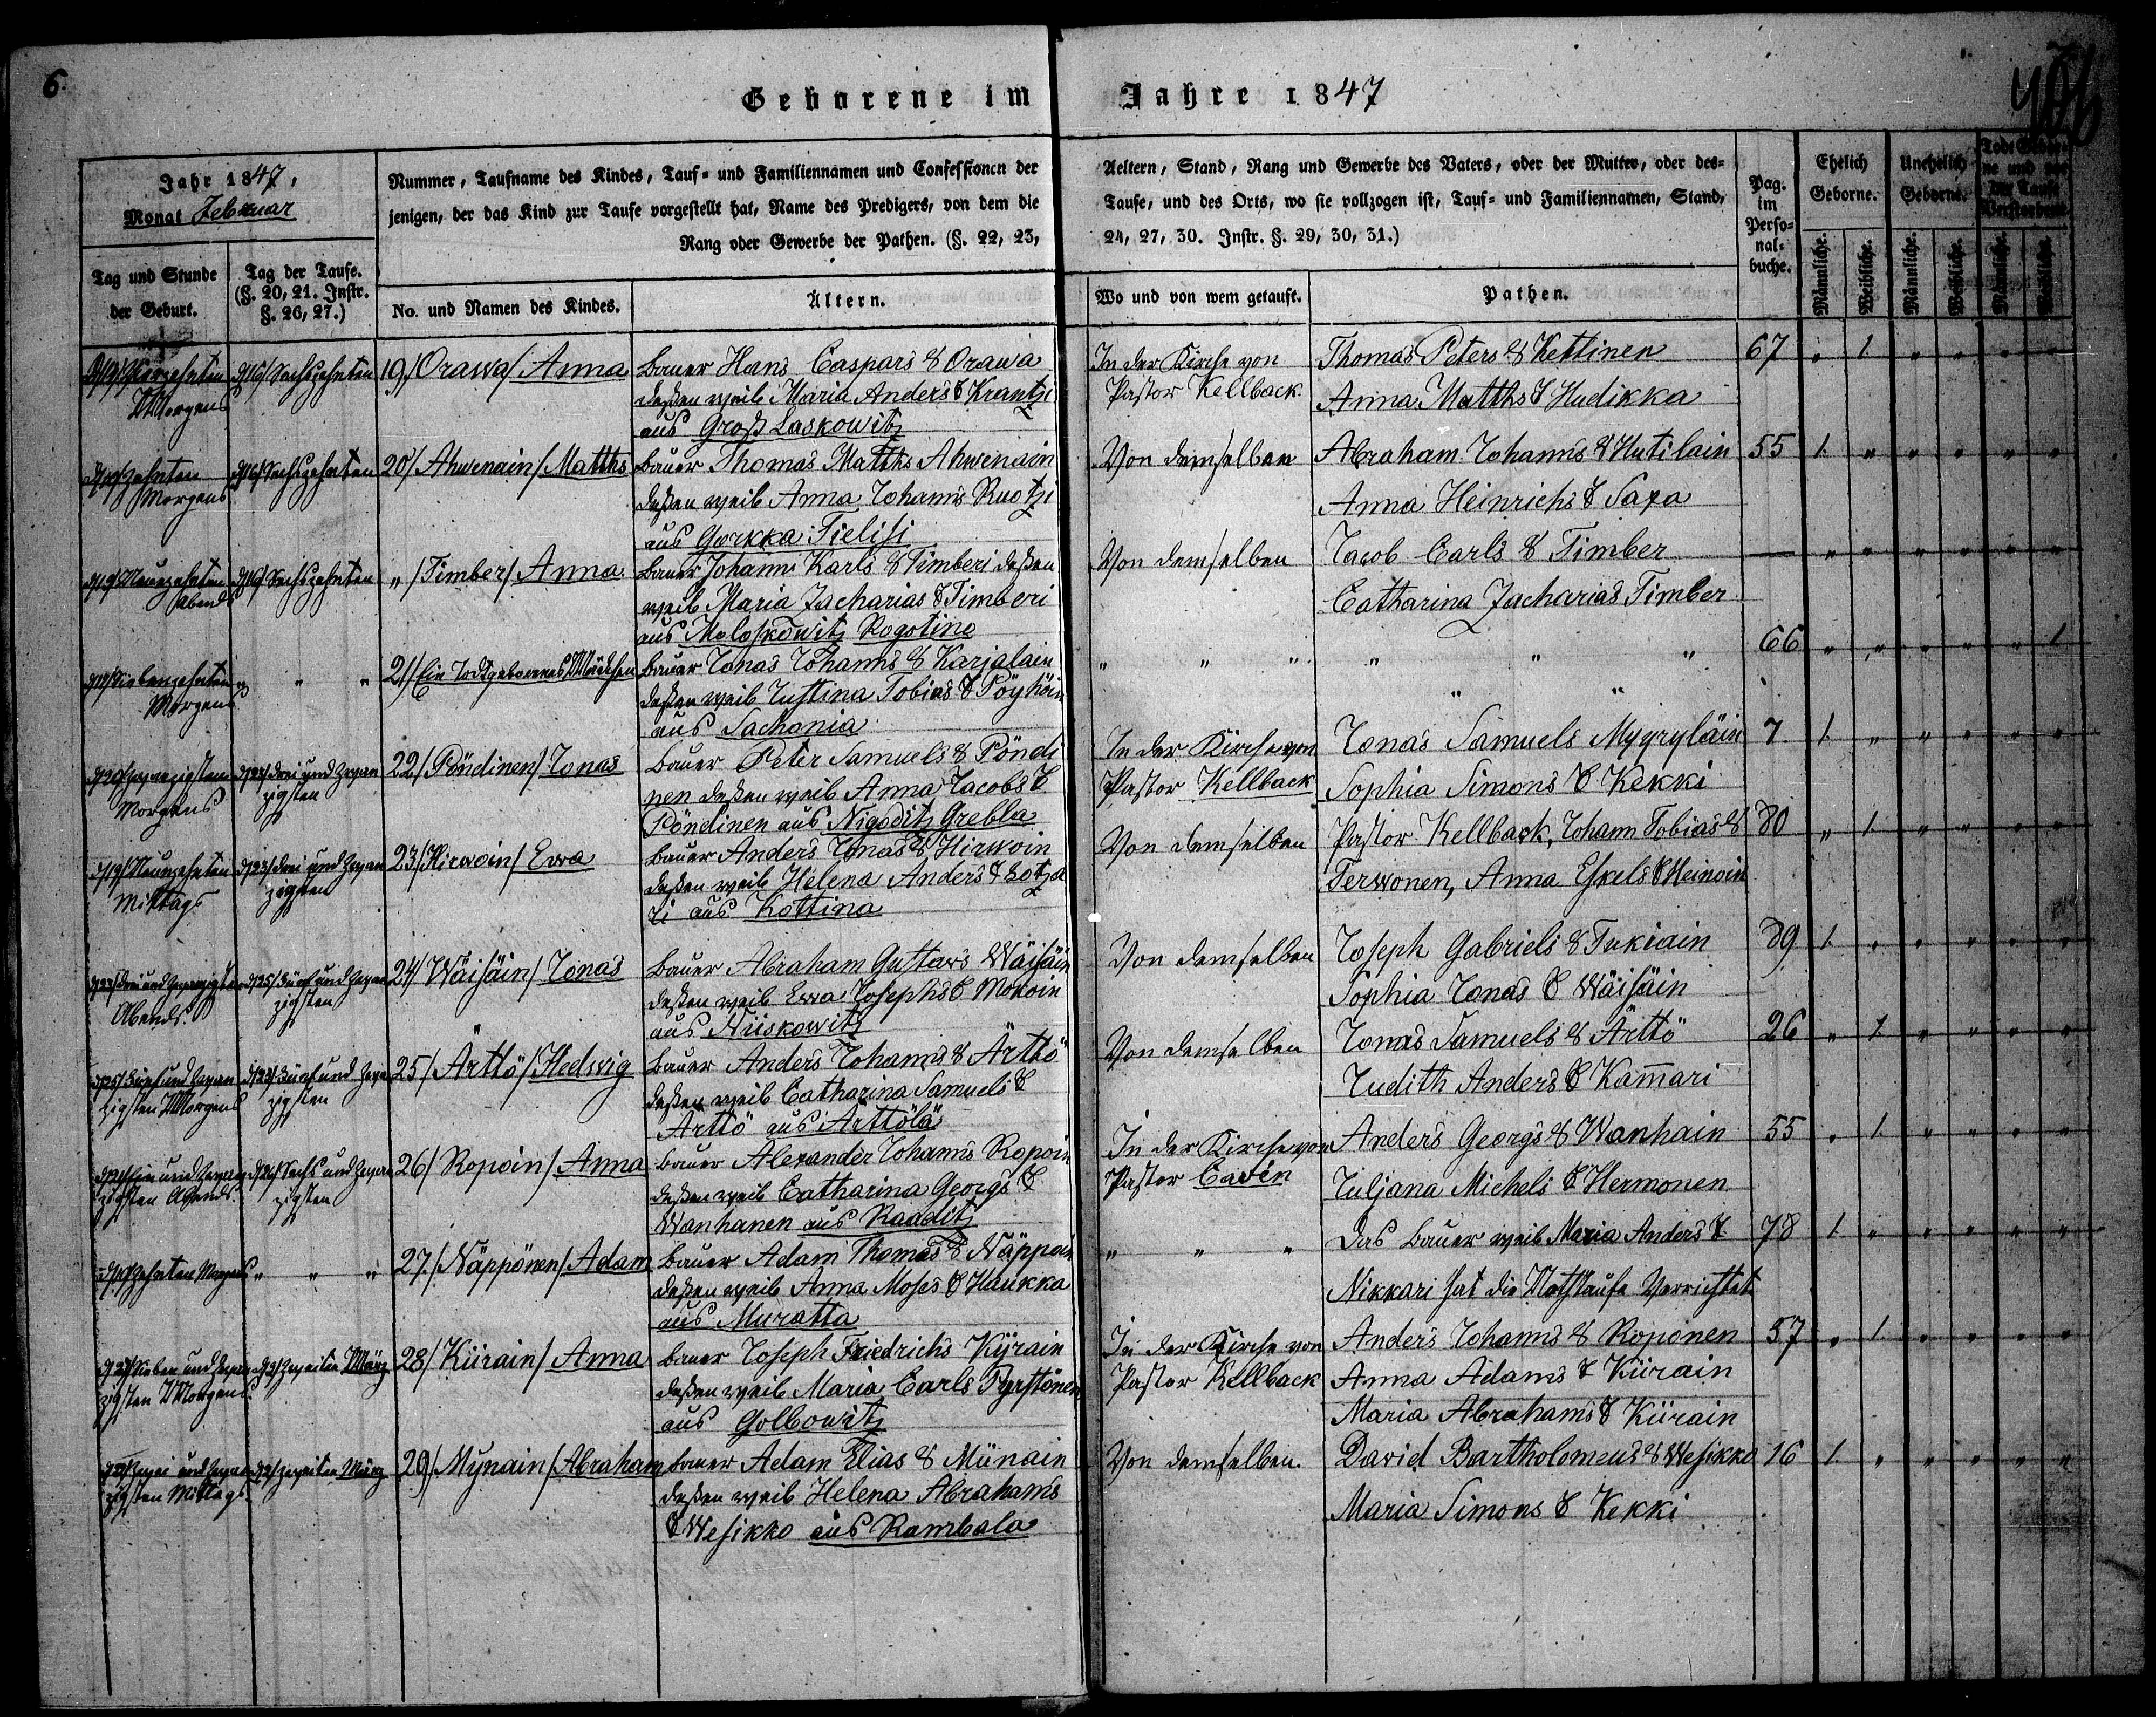 6.
Geborene im Jahre 1847
Jahr 1847,
Monat Februar
Nummer, Taufname des Kindes, Tauf= und Familiennamen und Confessionen der
jenigen, der das Kind zur Taufe vorgestellt hat, Name des Predigers, von dem die
Rang oder Gewerbe der Pathen. (§. 22, 23,
Aeltern, Stand, Rang und Gewerbe des Vaters, oder der Mutter, oder des=
Taufe, und des Orts, wo sie vollzogen ist, Tauf= und Familiennamen, Stand,
24, 27, 30. Instr. §. 29, 30, 31.)
Pag.
im
Perso=
nal=
buche.
Ehelich
Geborne.
Unehelich
Geborne.
Tag und Stunde
der Geburt.
Tag der Taufe.
(§. 20, 21. Instr.
§. 26, 27.)
No. und Namen des Kindes.
Ältern.
Wo und von wem getauft.
Pathen.
Männliche.
Weibliche.
Männliche.
Weibliche.
Männliche.
Weibliche.
Vierzehnten
Morgens
d/16/ Sechszehnten
19/ Orawa/ Anna
Bauer Hans Caspars & Orawa
deßen weib Maria Anders & Krantzi
aus Groß Laskowitz
In der Kirche von
Pastor Kellback.
Thomas Peters & Kettinen
Anna Matths & Hudikka
67 " 1. " " " "
Zehnten
Morgens
d/16/ Sechszehnten
20/ Ahwenain/ Matths
Bauer Thomas Matths Ahwenain
deßen weib Anna Johanns Ruotzi
aus Gorkka Tielisi
Von demselben
Abraham Johanns & Hutilain
Anna Heinrichs & Saxa
55 1. " " " " "
d/19/ Neunzehnten
Abends
d/16/ Sechszehnten
"/ Timber/ Anna
Bauer Johann Karls & Timberi deßen
weib Maria Zacharias & Timberi
aus Moloskowitz Rogotino
Von demselben
Jacob Carls & Timber
Catharina Zacharias Timber
— " " " " " "
d/17/ Siebenzehnten
Morgens
" " "
21/ Ein Todtgeborenes Mädchen
Bauer Jonas Johanns & Karjalain
deßen weib Justina Tobias & Pöyhöin
aus Sachonia
" " "
" " "
" "
66 " " " " " 1
d/20/ zwanzigsten
Morgens
d/23/ drei und zwan
zigsten
22/ Pöndinen/ Jonas
Bauer Peter Samuels & Pöndi
nen deßen weib Anna Jacobs &
Pöndinen aus Nigoditz Grebla
In der Kirche von
Pastor Kellback
Jonas Samuels Mygryläin
Sophia Simons & Kekki
7 1. " " " " "
d/19/ Neunzehnten
Mittags
d/23/ drei und zwan
zigsten
23/ Hirwoin/ Ewa
Bauer Anders Jonas & Hirwoin
deßen weib Helena Anders & Lotja
ri aus Kottina
Von demselben
Pastor Kellback, Johann Tobias &
Terwonen, Anna Eskels & Heinoin
80 " 1. " " " "
d/23/ drei und zwanzigsten
Abends.
d/25/ Fünf und zwan
zigsten
24/ Wäisäin/ Jonas
Bauer Abraham Gustavs Wäisäin
deßen weib Ewa Josephs & Mokoin
aus Niiskowitz
Von demselben
Joseph Gabriels & Tukiain
Sophia Jonas & Wäisäin
89 1. " " " " "
d/25/ Fünf und zwan
zigsten Morgens
Fünf und zwan
zigsten
25/ Ärttö/ Hedwig
Bauer Anders Johanns & Ärttö
deßen weib Catharina Samuels &
Ärttö aus Ärttölä
Von demselben
Jonas Samuels & Ärttö
Judith Anders & Kam̄ari
26 " 1. " " " "
d/21/ Ein und zwan
zigsten Abends.
d/26/ Sechs und zwan
zigsten
26/ Ropoin/ Anna
Bauer Alexander Johanns Ropoin
deßen weib Catharina Georgs &
Wanhanen aus Raaditz
In der Kirche von
Pastor Cavén
Anders Georgs & Wanhain
Juljana Michels & Hermonen
55 " 1. " " " "
Zehnten Morgens
" " "
27./ Näppönen/ Adam
Bauer Adam Thomas & Näppoin
deßen weib Anna Moses & Haukka
aus Muratta
" " "
Das Bauer weib Maria Anders &
Nikkari hat die Nothtaufe Verrichtet
78 1. " " " " "
d/27/ Sieben und zwan
zigsten Morgens.
d/2/ Zweiten März
28/ Kiirain/ Anna
Bauer Joseph Friedrichs Kijrain
deßen weib Maria Carls Pyrstönen
aus Golbowitz
In der Kirche von
Pastor Kellback
Anders Johanns & Roponen
Anna Adams & Kiirain
Maria Abrahams & Kiirain
57 " 1. " " " "
d/22/ Zwei und zwan
zigsten Mittags
d/2/ Zweiten März
29/ Mynain/ Abraham
Bauer Adam Elias & Münain
deßen weib Helena Abrahams
& Wesikko aus Rambala
Von demselben.
David Bartholomeus & Wesikko
Maria Simons & Kekki
16 1. " " " " "